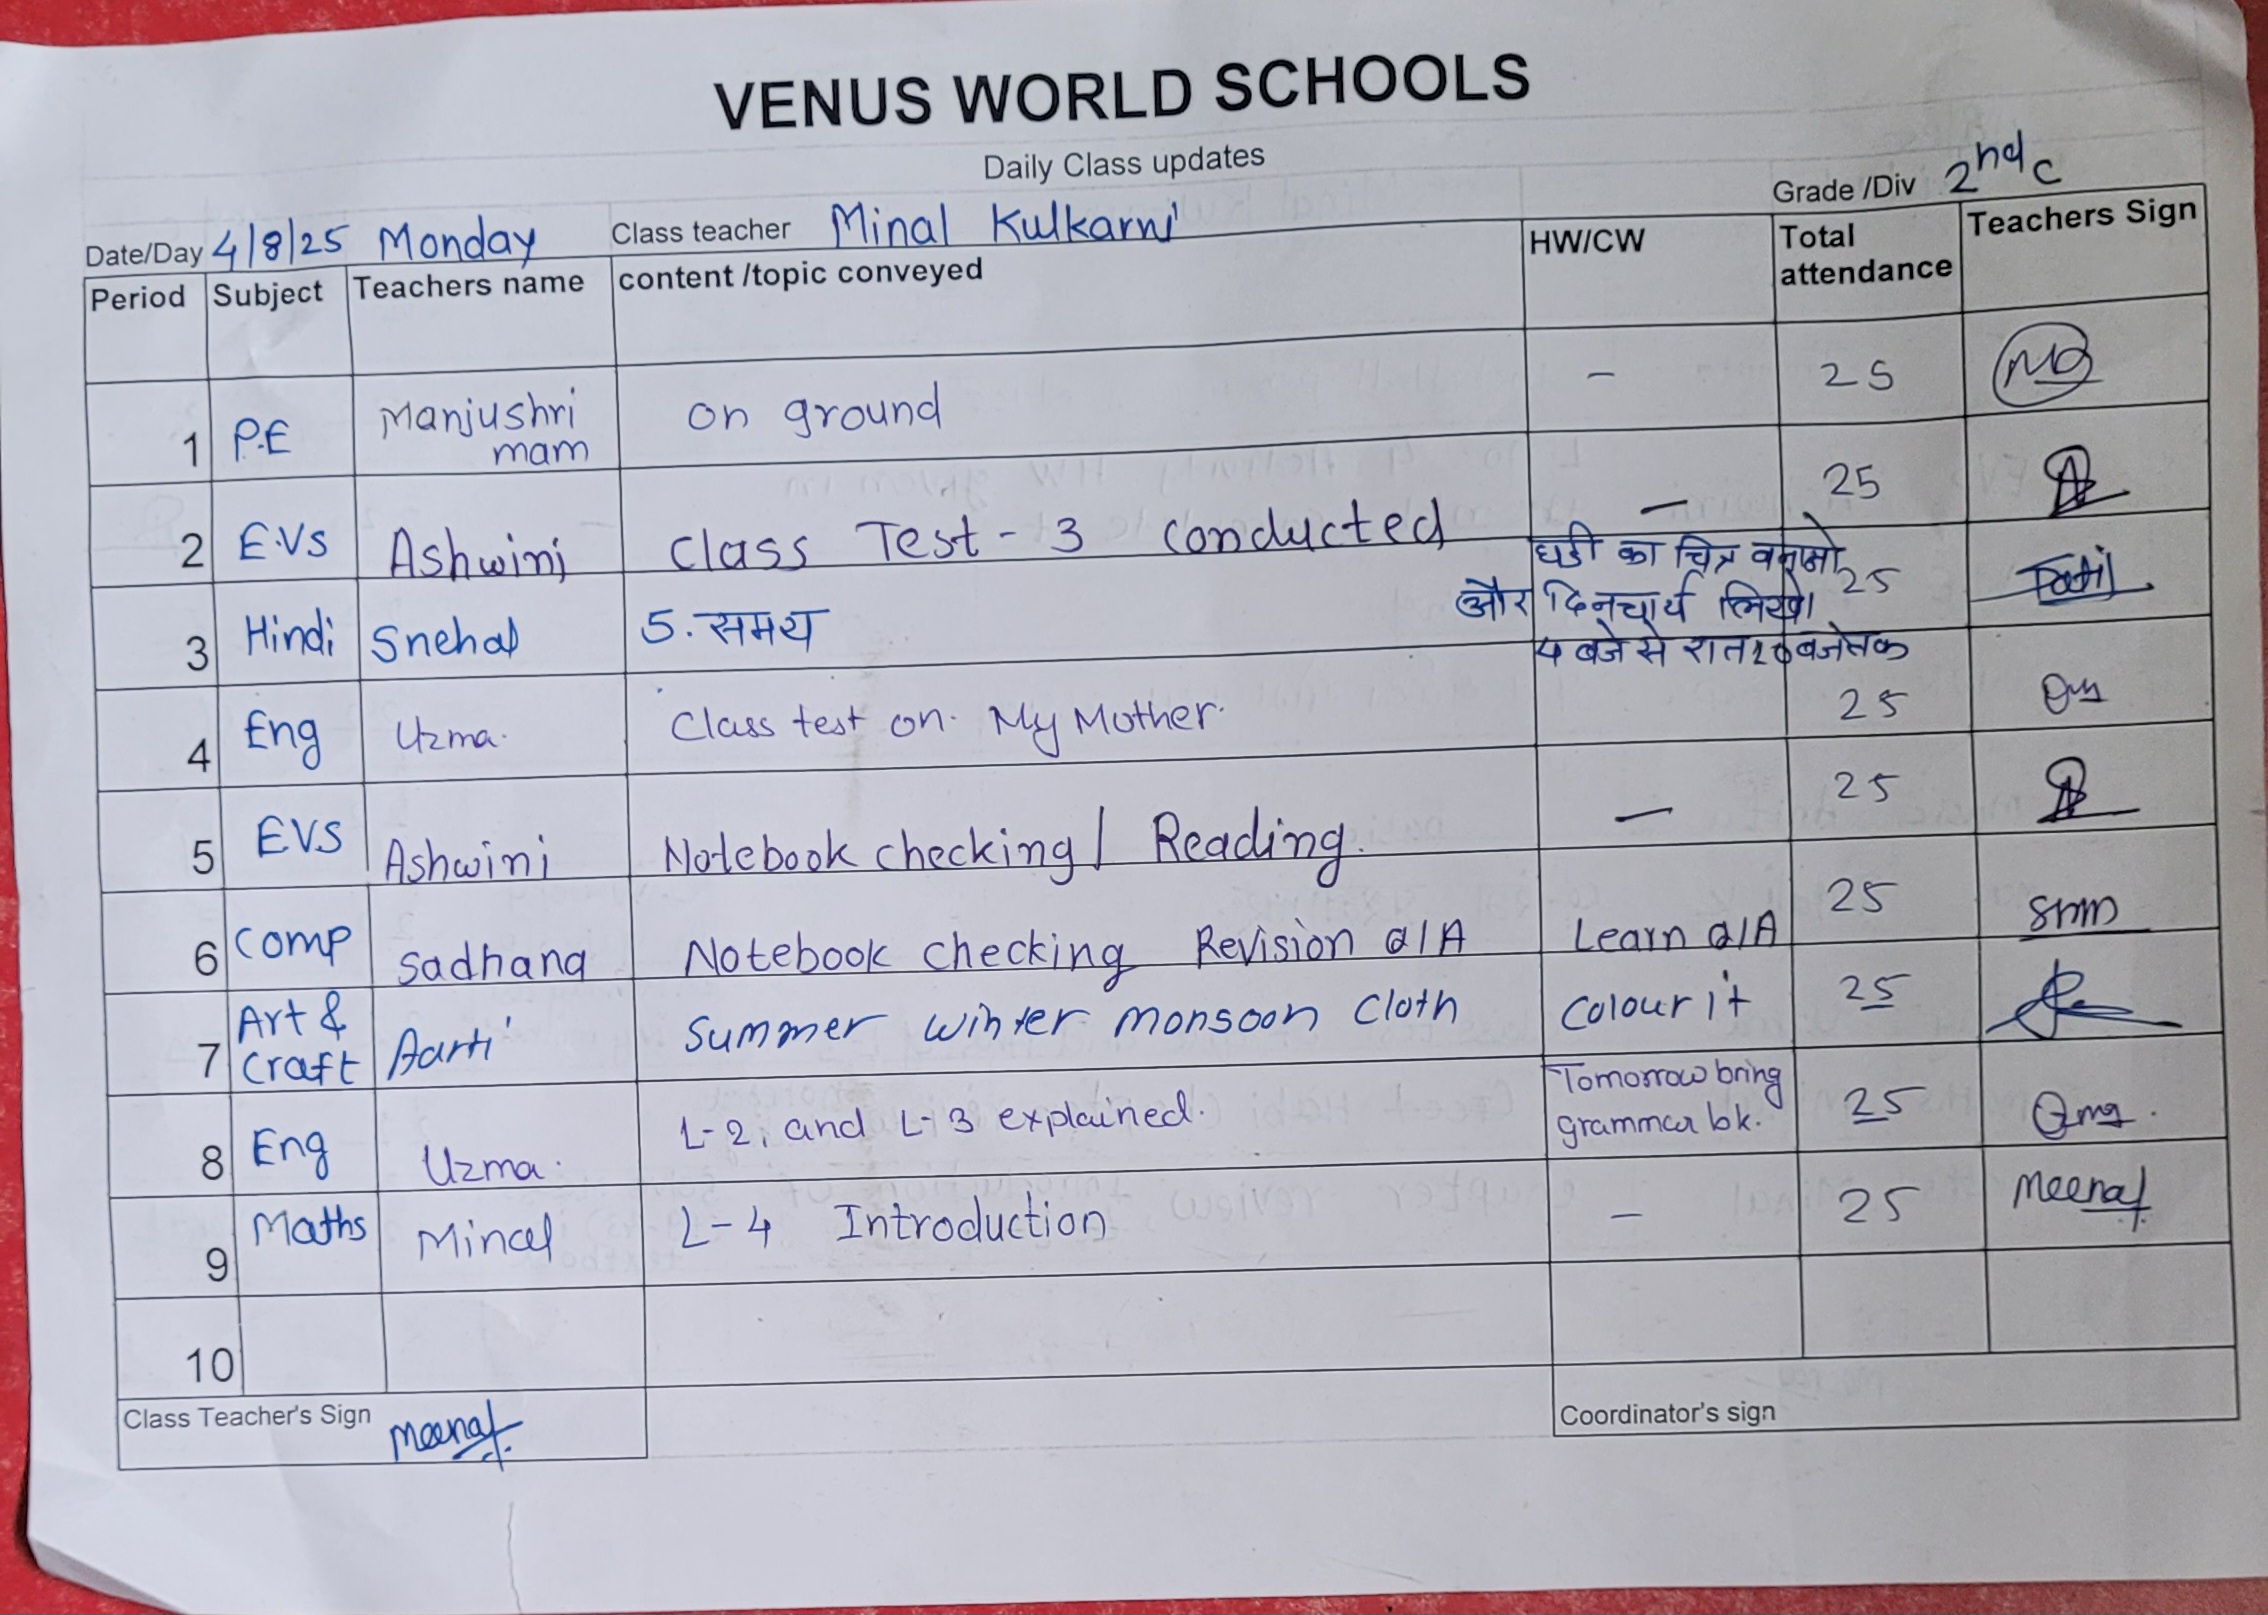 VENUS WORLD SCHOOLS
Daily Class updates
Grade /Div 2nd C
Date/Day 4/8/25 Monday Class teacher Minal Kulkarni
Period Subject Teachers name content /topic conveyed HW/CW Total attendance Teachers Sign
1 P.E Manjushri mam on ground - 25
2 E.VS Ashwini Class Test - 3 conducted - 25
घडी का चित्र बनाओ
3 Hindi Snehal 5. समय और दिनचार्य लिखो। 25 Patil
4 बजे से रात 10 बजे तक
4 Eng Uzma. Class test on. My Mother. 25
5 EVS Ashwini Notebook checking / Reading. - 25
6 Comp Sadhana Notebook checking Revision Q/A Learn Q/A 25
7 Art & Craft Aarti Summer winter monsoon cloth Colour it 25
8 Eng Uzma. L-2, and L-3 explained. Tomorrow bring grammar bk. 25
9 Maths Minal L-4 Introduction - 25 Meenal
10
Class Teacher's Sign Meenal
Coordinator's sign